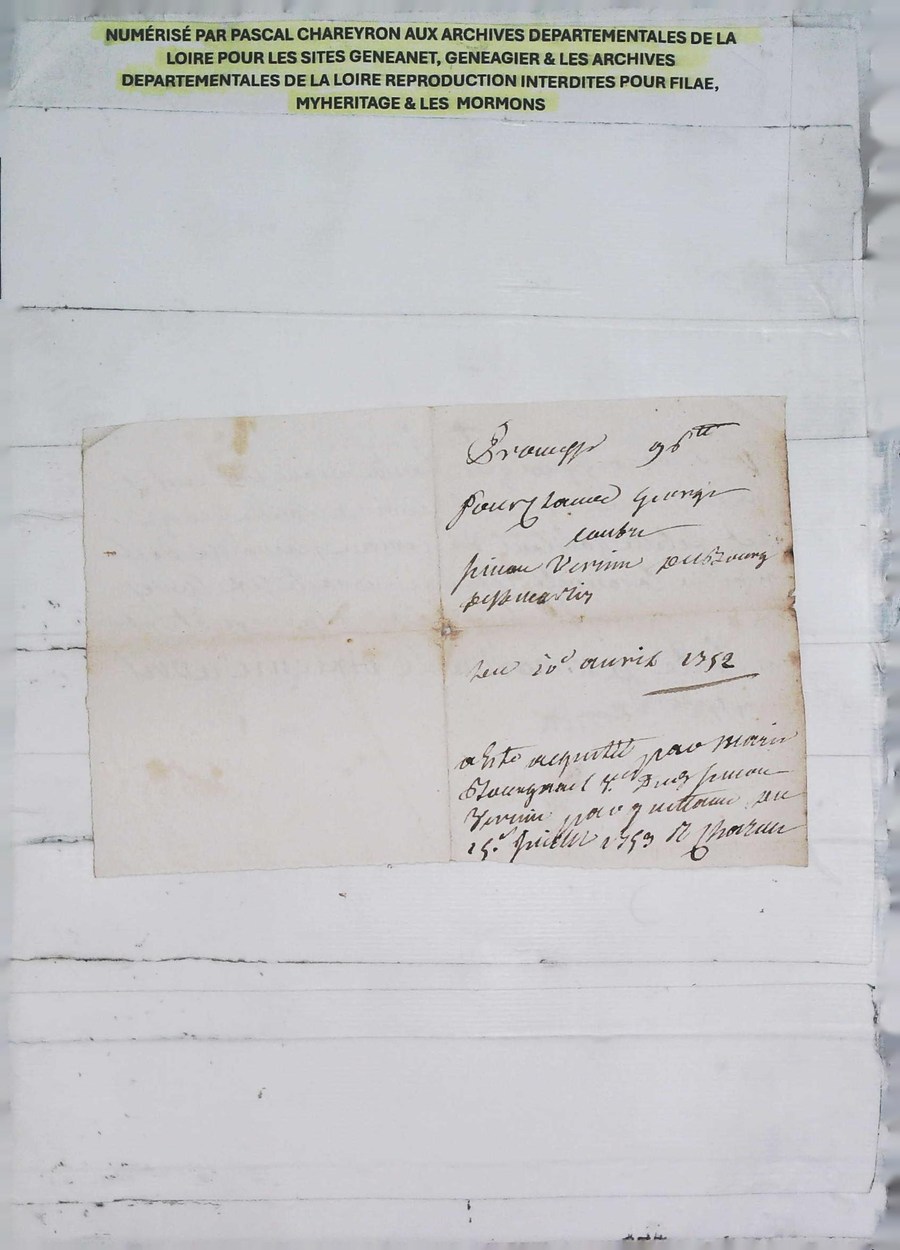 NUMÉRISÉ PAR PASCAL CHAREYRON AUX ARCHIVES DEPARTEMENTALES DE LA
LOIRE POUR LES SITES GENEANET, GENEAGIER & LES ARCHIVES
DEPARTEMENTALES DE LA LOIRE REPRODUCTION INTERDITES POUR FILAE,
MYHERITAGE & LES MORMONS
96tt
Pour Claude George
contre
simon Verrier du Bourg
de st martin
du 20e avril 1752
a Esté acquitté par marie
Ve Dud simon
Verrier par quittance du
15e Juillet 1753